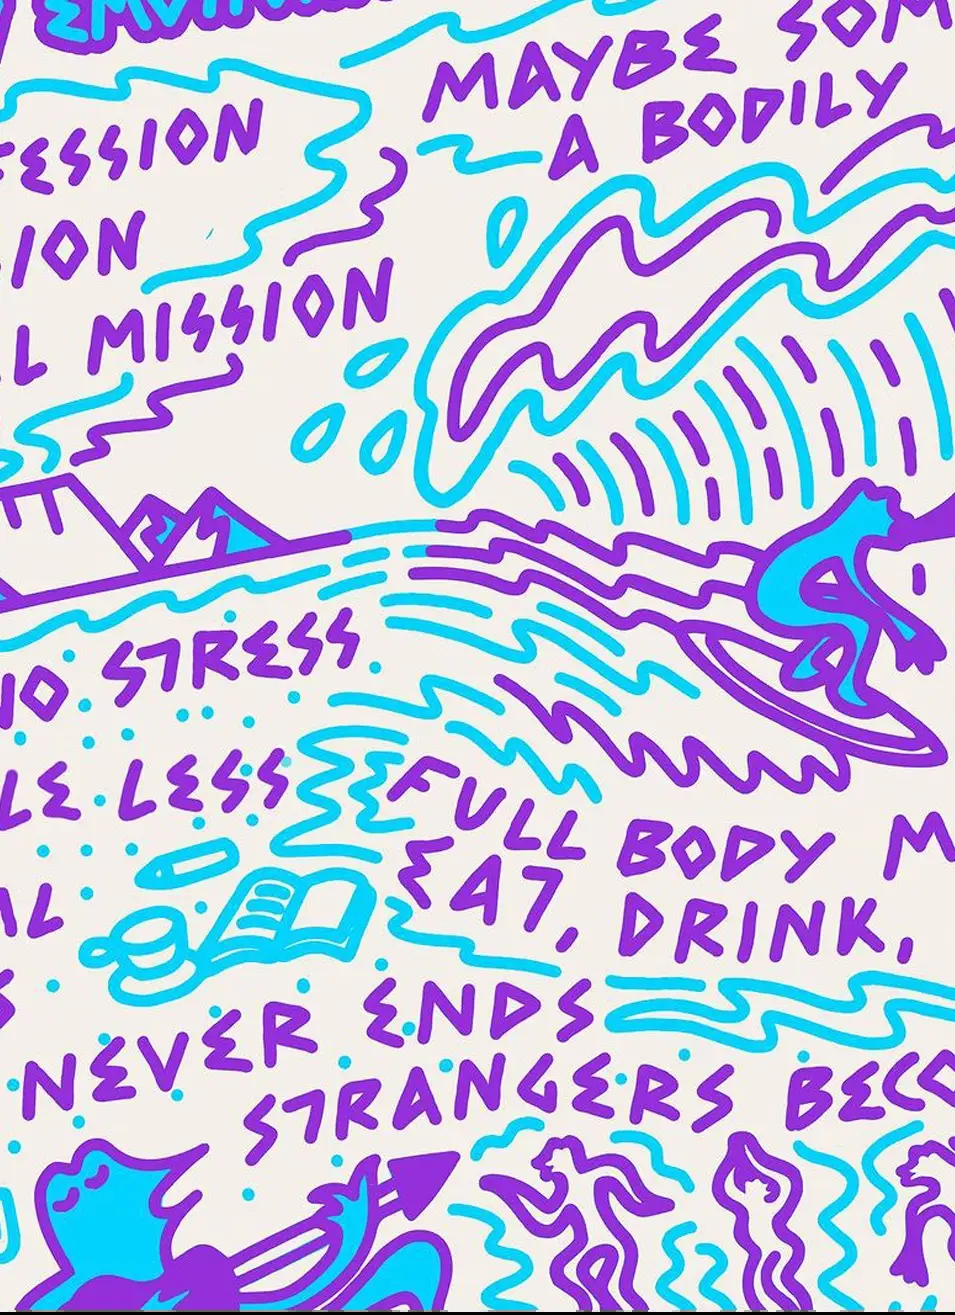 MAYBE SOM
A BODILY
ESSION
ION
L MISSION
NO STRESS
LE LESS
FULL BODY M
EAT, DRINK,
NEVER ENDS
STRANGERS BECO